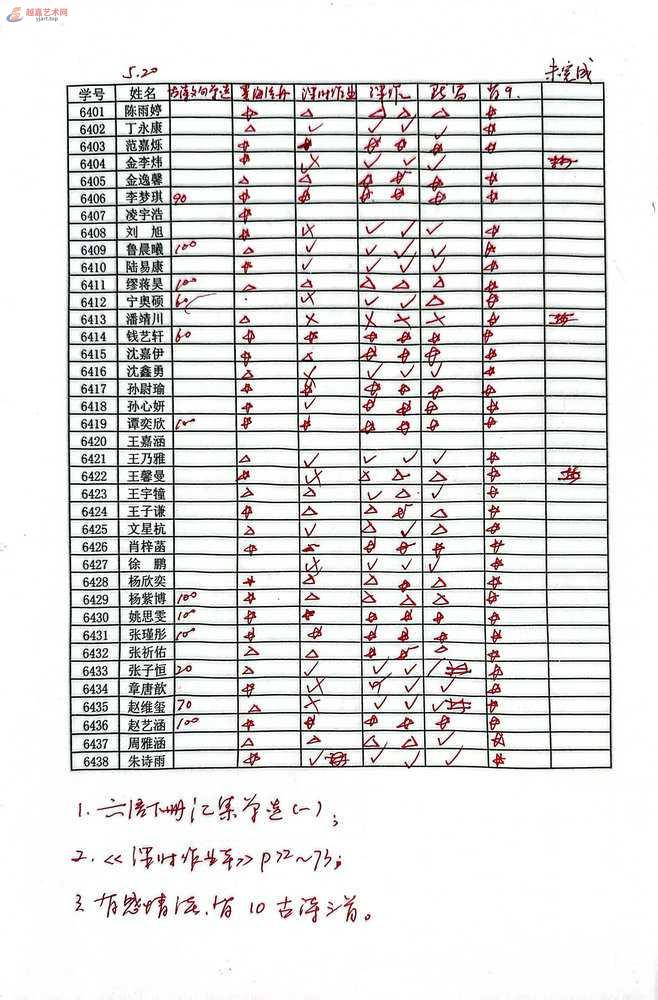 越嘉艺术网
yjart.top
5.20 未完成
学号 姓名 课时作业 背9.
6401 陈雨婷
6402 丁永康
6403 范嘉烁
6404 金李炜
6405 金逸馨
6406 李梦琪 90
6407 凌宇浩
6408 刘旭
6409 鲁晨曦 100
6410 陆易康
6411 缪蒋昊 100
6412 宁奥硕 60
6413 潘靖川
6414 钱艺轩 60
6415 沈嘉伊
6416 沈鑫勇
6417 孙尉瑜
6418 孙心妍
6419 谭奕欣 100
6420 王嘉涵
6421 王乃雅
6422 王馨曼
6423 王宇锺
6424 王子谦
6425 文星杭
6426 肖梓菡
6427 徐鹏
6428 杨欣奕
6429 杨紫博 100
6430 姚思雯 100
6431 张瑾彤 100
6432 张祈佑
6433 张子恒 20
6434 章唐歆
6435 赵维玺 70
6436 赵艺涵 100
6437 周雅涵
6438 朱诗雨
1. 六语下册汇集单造(一);
2.《课时作业本》P72~73;
3. 有感情读、背10古诗三首。